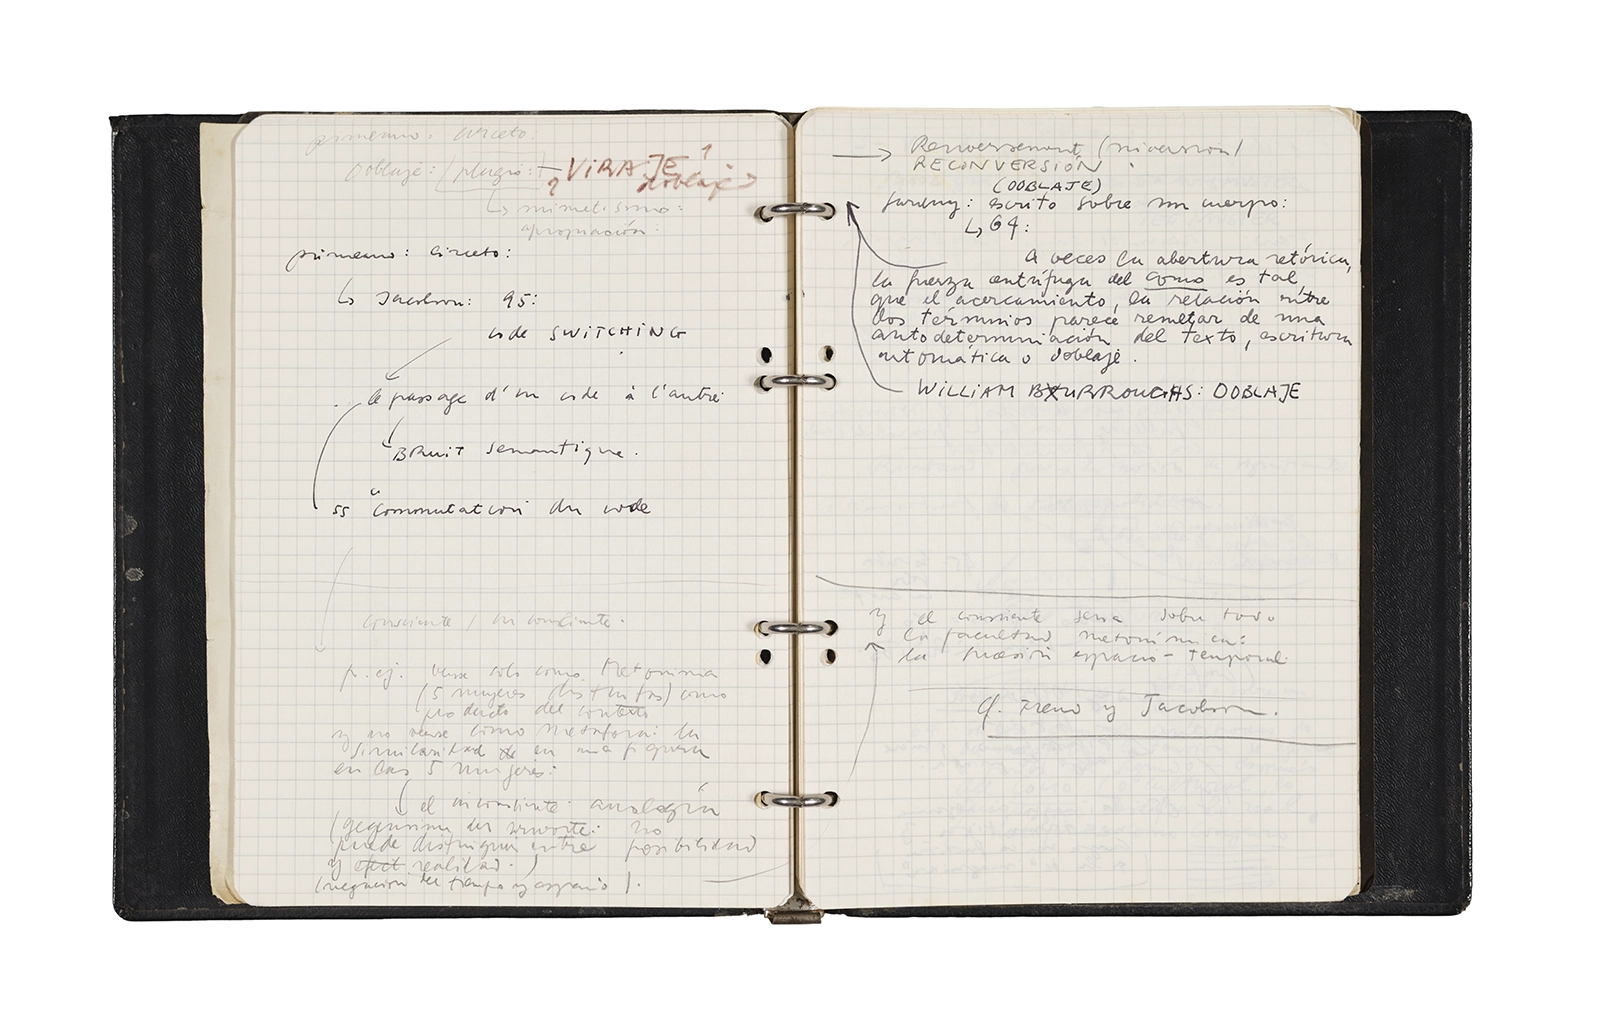 primeano: circeto.
Doblaje: / plagio: + VIRAJE
? doblaje
↳ mimetismo:
apropriación:
primeano: circeto:
↳ Jacobson: 95:
code SWITCHING
le passage d'un code à l'autre
BRUIT Semantique.
ss commutation du code
consciente / inconsciente.
p. ej. verse solo como Metonimia
(5 mujeres distintas) como
producto del contexto
y no verse como Metafora: la
similaridad en una figura
en las 5 mujeres:
el inconsciente: analogía
(gegensinn der urworte: no
puede distinguir entre posibilidad
y realidad.)
(negación del tiempo y espacio).
→ Renversement (inversion)
RECONVERSIÓN
(DOBLAJE)
Sarduy: escrito sobre un cuerpo:
↳ 64:
A veces la abertura retórica,
la fuerza centrífuga del como es tal
que el acercamiento, la relación entre
dos términos parece remetar de una
autodeterminación del texto, escritura
automática o doblaje.
WILLIAM BURROUGHS: DOBLAJE
y el consciente seria sobre todo
la facultad metonimica:
la sucesión espacio-temporal
Cf. Freud y Jacobson.